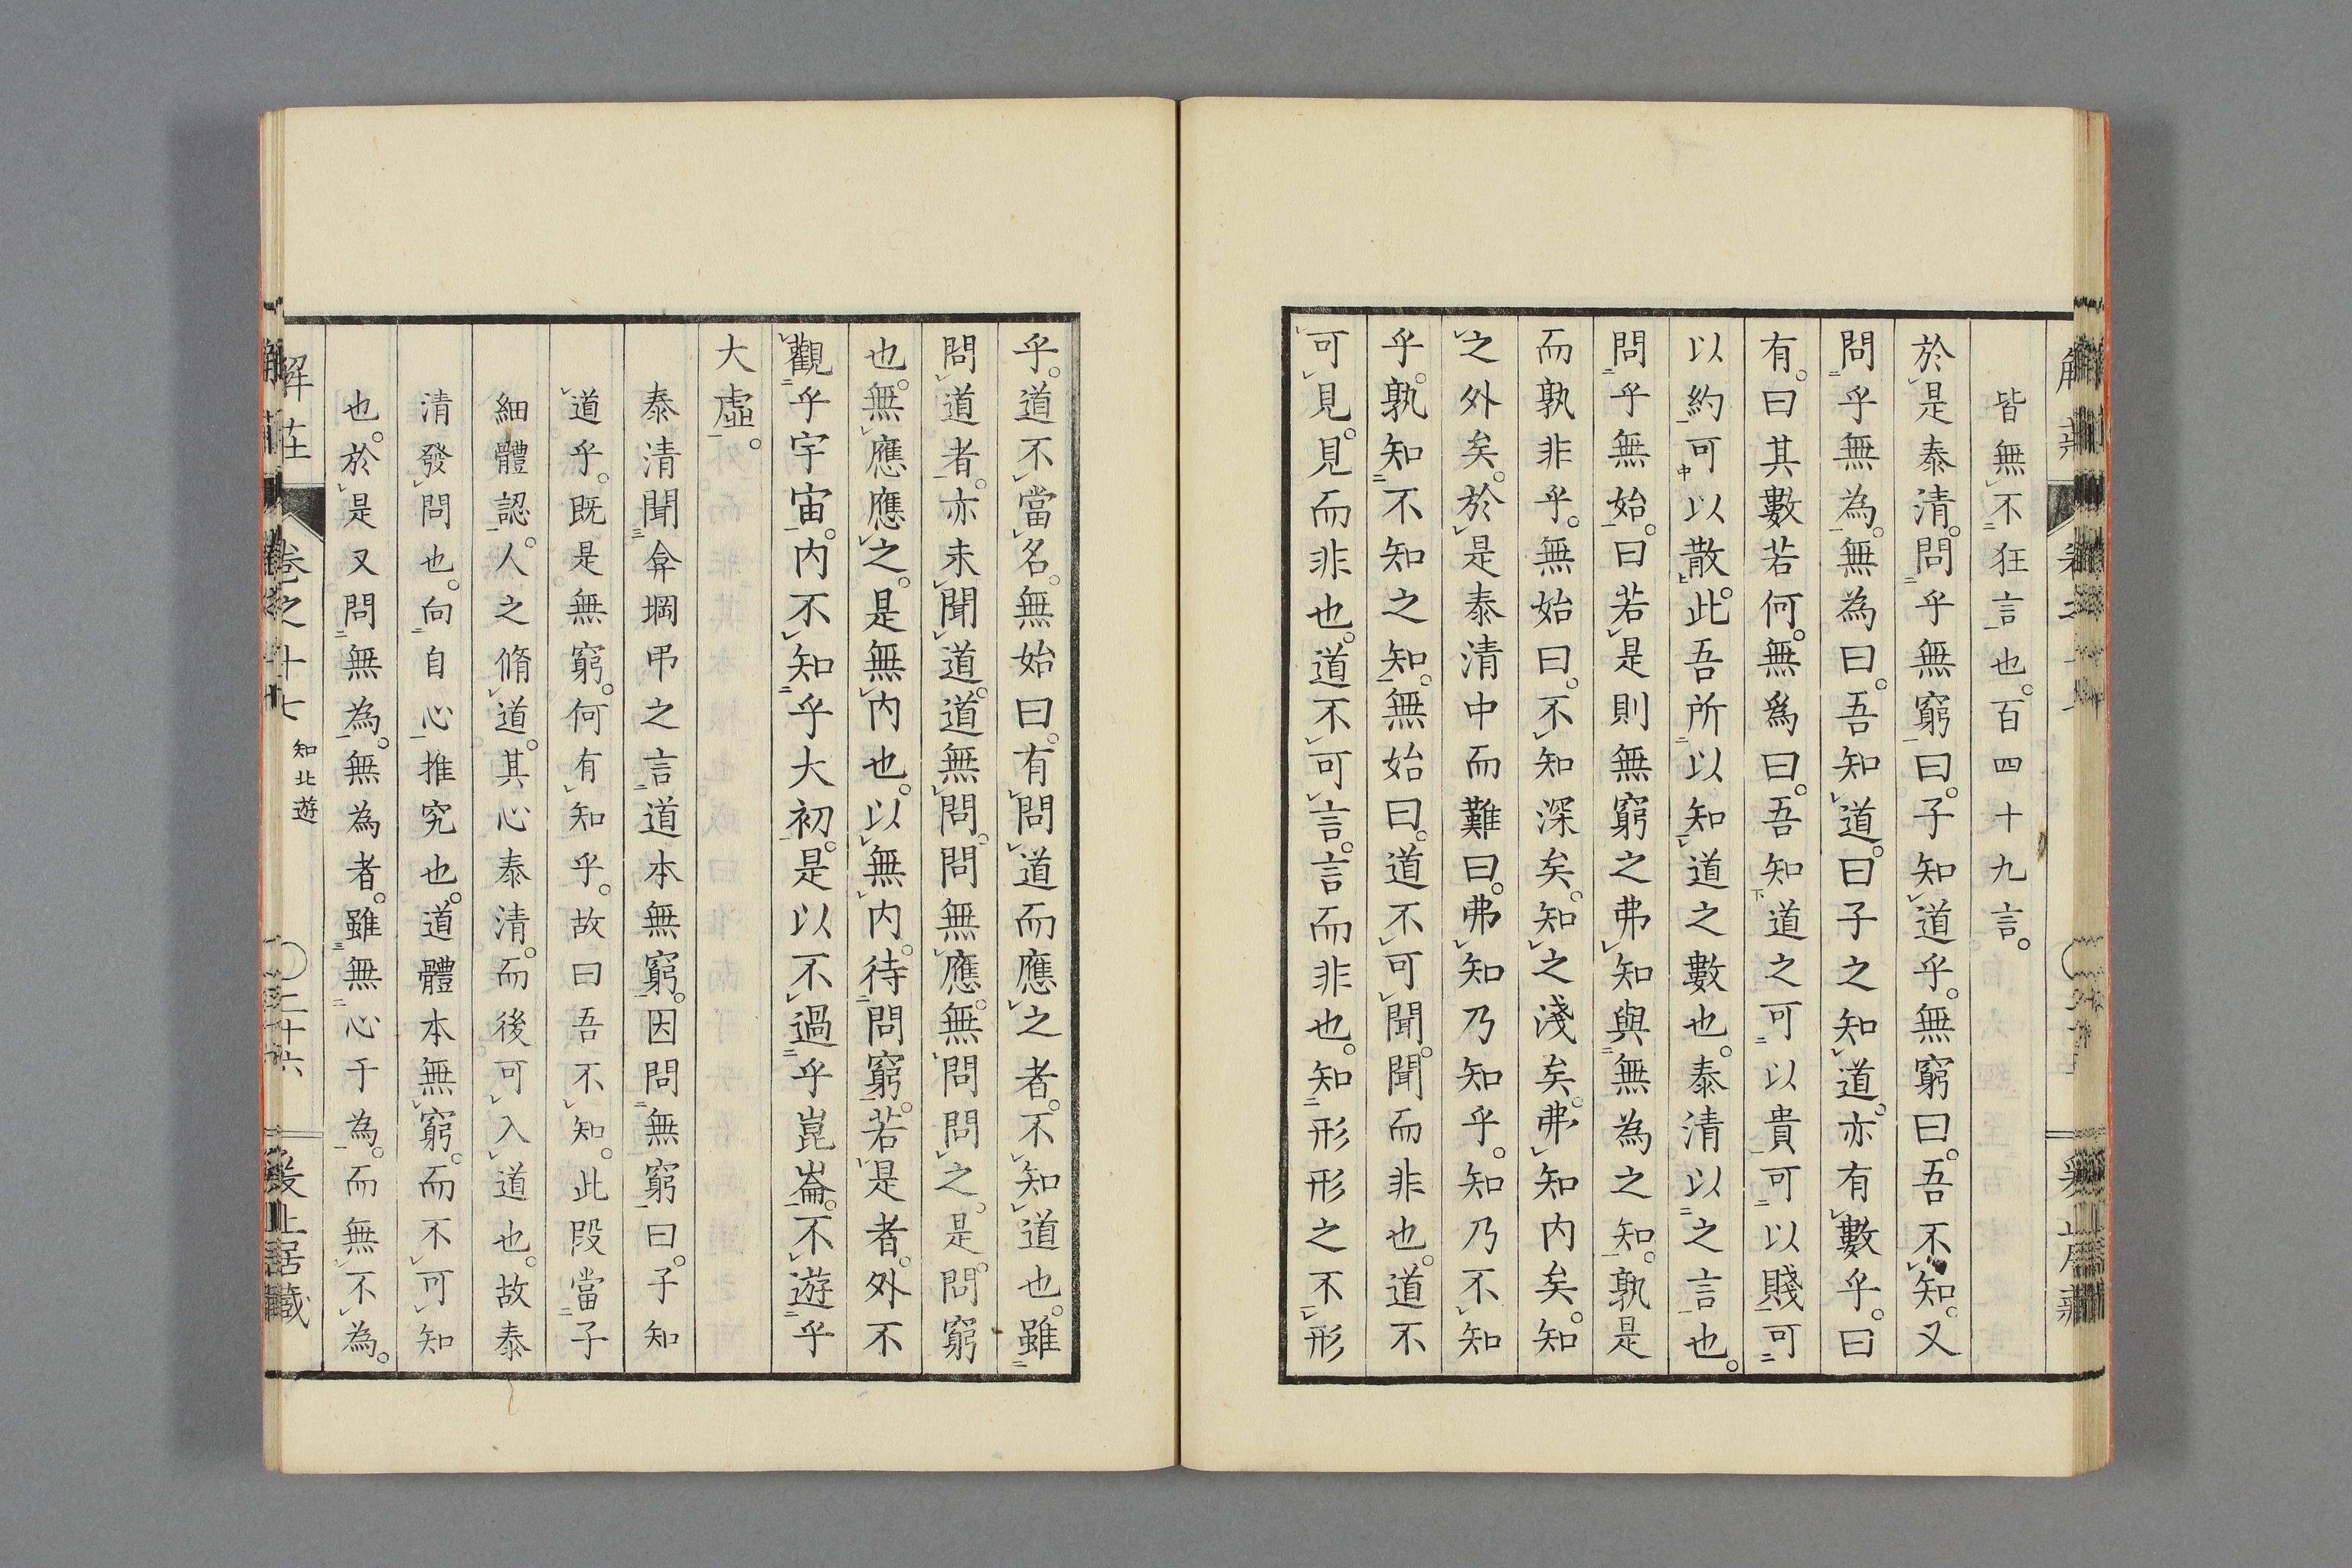 皆無不狂言也。百四十九言。
於是泰清。問乎無窮曰。子知道乎。無窮曰。吾不知。又
問乎無為。無為曰。吾知道。曰子之知道。亦有數乎。曰
有。曰其數若何。無爲曰。吾知道之可以貴可以賤可
以約可以散。此吾所以知道之數也。泰清以之言也。
問乎無始。曰若是則無窮之弗知與無為之知。孰是
而孰非乎。無始曰。不知深矣。知之淺矣。弗知内矣。知
之外矣。於是泰清中而難曰。弗知乃知乎。知乃不知
乎。孰知不知之知。無始曰。道不可聞。聞而非也。道不
可見。見而非也。道不可言。言而非也。知形形之不形
乎。道不當名。無始曰。有問道而應之者。不知道也。雖
問道者。亦未聞道。道無問。問無應。無問問之。是問窮
也。無應應之。是無内也。以無内。待問窮。若是者。外不
觀乎宇宙。内不知乎大初。是以不過乎崑崙。不遊乎
大虛。
泰清聞弇堈弔之言道本無窮。因問無窮曰。子知
道乎。既是無窮。何有知乎。故曰吾不知。此段當子
細體認。人之脩道。其心泰清。而後可入道也。故泰
清發問也。向自心推究也。道體本無窮。而不可知
也。於是又問無為。無為者。雖無心于為。而無不為。
解莊
卷之十七
知北遊
二十六